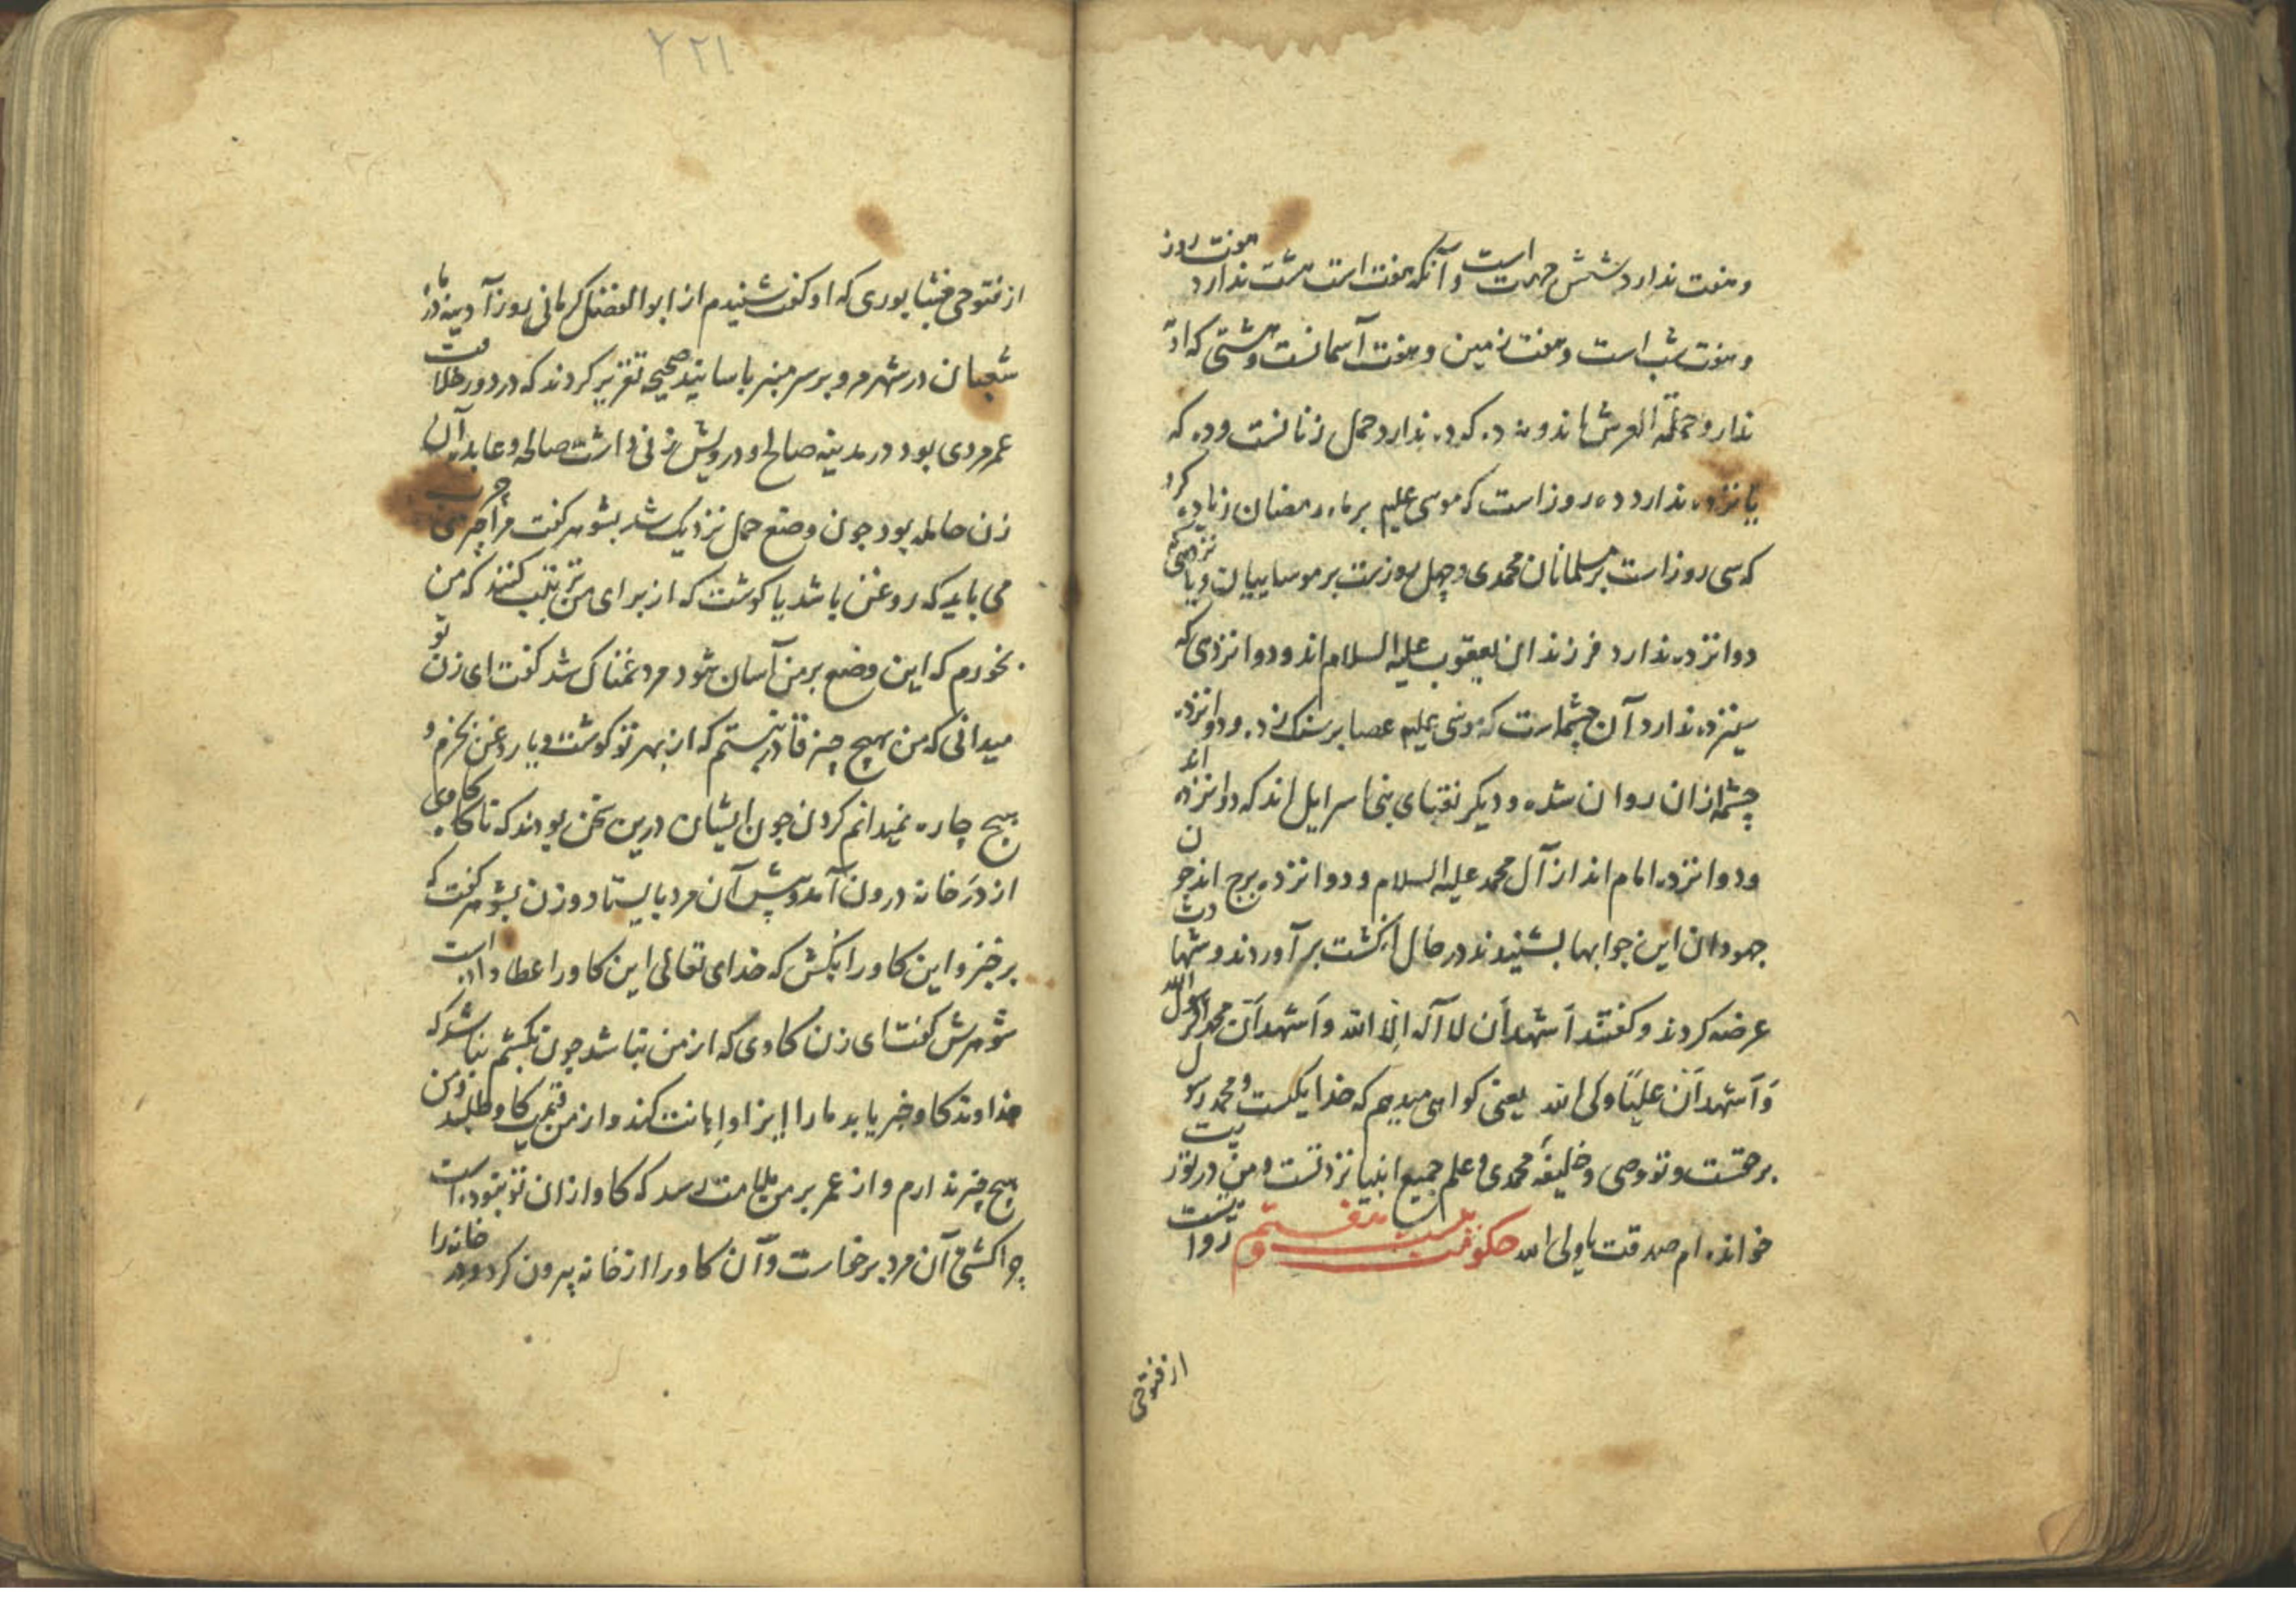 و هفت ندارد شش جهت است و آنکه هفت است هشت ندارد هفت روز
و هفت شب است و هفت زمین و هفت آسمانست و هشتی که او نه
ندارد حملة العرش اند و نه ده که ده ندارد حمل زنانست و ده که
یانزده ندارد ده روز است که موسی علیم بر ماه رمضان زیاده کرد
که سی روز است بر مسلمانان محمدی و چهل روزست بر موساییان و یانزدهی که
دوانزده ندارد فرزندان یعقوب علیه السلام اند و دوانزدهی که
سینزده ندارد آن چشماست که موسی علیم عصا بر سنک زد و دوانزده
چشمه ازان روان شده و دیکر نقبای بنی اسرایل اند که دوانزده اند
و دوانزده امام اند از آل محمد علیه السلام و دوانزده برج اند جون
جهودان این جوابها بشنیدند در حال انکشت بر آوردند و شهادت
عرضه کردند و کفتند اَشهد اَن لا آله اِلّا الله و اَشهد اَنّ محمداً رسول الله
وَ اَشهد اَنّ علیًا ولی الله یعنی کواهی میدهم که خدا یکیست و محمد رسول
بر حقست و تو وصی و خلیفهٔ محمدی و علم جمیع انبیا نزد تست و من در توریت
خوانده ام صدقت یا ولی الله حکایت بیست و هفتم روایتست
از فتوحی
۲۲۱
از فتوحی نیشابوری که او کفت شنیدم از ابو الفضل کرمانی روز آدینه در ماه
شعبان در شهر مرو بر سر منبر باسانید صحیحه تقریر کردند که در دور خلافت
عمر مردی بود در مدینه صالح و درویش زنی داشت صالحه و عابده آن
زن حامله بود جون وضع حمل نزدیک شد بشوهر کفت مرا چیزی چرب
می باید که روغن باشد یا کوشت که از برای من ترتیب کنند که من
بخورم که این وضع بر من آسان شود مرد غمناک شد کفت ای زن تو
میدانی که من بهیچ چیز قادر نیستم که از بهر تو کوشت و یا روغن بخرم و
هیچ چاره نمیدانم کردن جون ایشان درین سخن بودند که ناکاه کاوی
از در خانه درون آمد و پیش آن مرد بایستاد و زن بشوهر کفت که
برخیز و این کاو را بکش که خدای تعالی این کاو را عطا داده است
شوهرش کفت ای زن کاوی که از من نباشد جون بکشم نباشد که
خداوند کاو خبر یابد ما را ایزا و اهانت کند و از من قیمت کاو طلبد و من
هیچ چیز ندارم و از عمر بر من ملامت رسد که کاو ازان تو نبوده است
چرا کشتی آن مرد برخاست و آن کاو را از خانه بیرون کرد و در خانه را